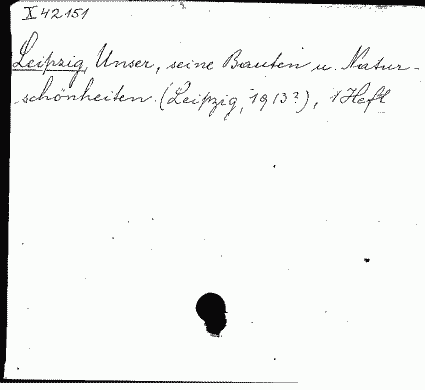 X 42151
Leipzig, Unser, seine Bauten u. Natur-
schönheiten. (Leipzig, 1913?), 1 Heft